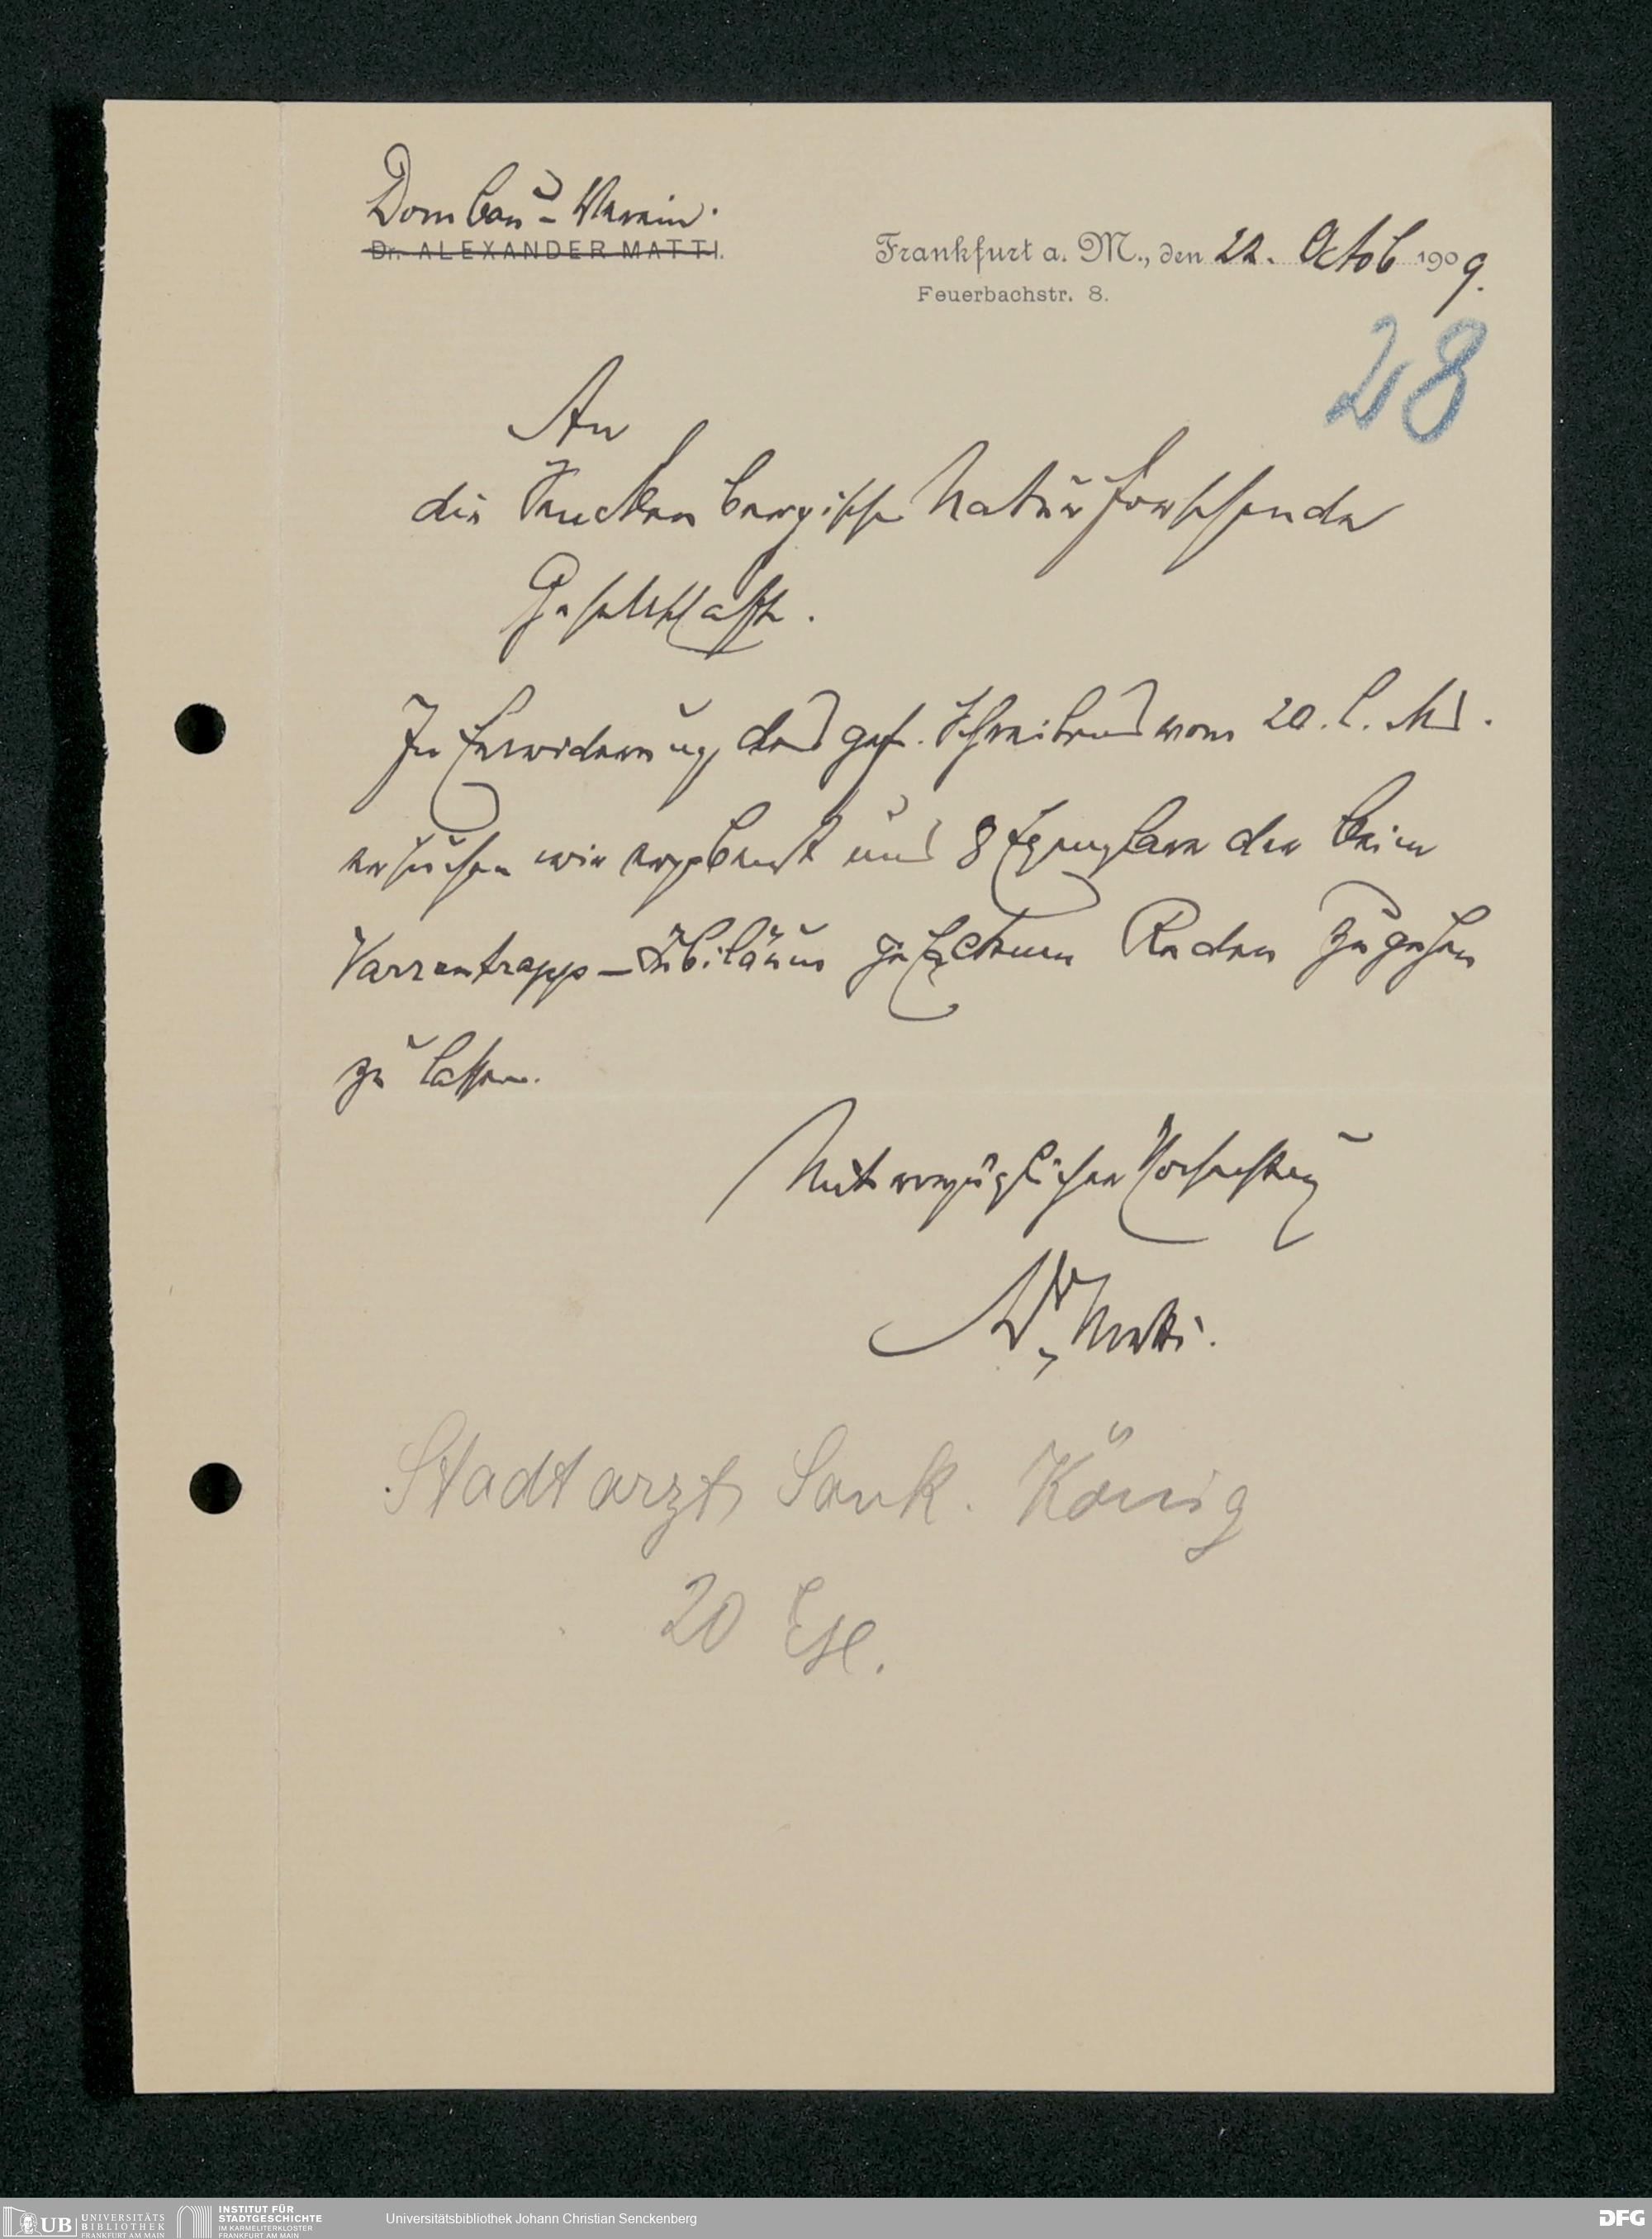 Dombau-Verein.
Dr. ALEXANDER MATTI.
Frankfurt a. M., den 22. Octob 1909.
Feuerbachstr. 8.
28
An
die Senckenbergische Naturforschende
Gesellschaft.
In Erwiderung des gef. Schreibens vom 20. l. Mts.
ersuchen wir ergebenst uns 8 Exemplare der beim
Varrentrapp-Jubiläum gehaltenen Reden zugehen
zu lassen.
Mit vorzüglicher Hochachtung
Dr. Matti.
Stadtarzt Sank. König
20 Ex.
UB UNIVERSITÄTS
BIBLIOTHEK
FRANKFURT AM MAIN
INSTITUT FÜR
STADTGESCHICHTE
IM KARMELITERKLOSTER
FRANKFURT AM MAIN
Universitätsbibliothek Johann Christian Senckenberg
DFG